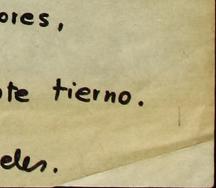 ores,
te tierno.
des.